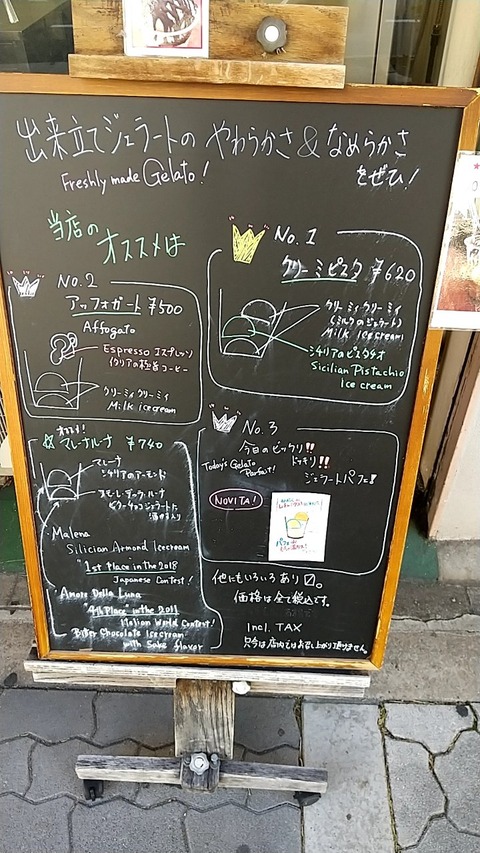 出来立てジェラートの やわらかさ & なめらかさ
Freshly made Gelato! をぜひ!
当店の
オススメは
No.1
クリーミーピスタ ¥620
クリーミィクリーミィ
(ミルクのジェラート)
Milk icecream
シチリアのピスタチオ
Sicilian Pistachio
Ice cream
No.2
アッフォガート ¥500
Affogato
Espresso エスプレッソ
イタリアの極旨コーヒー
クリーミィクリーミィ
Milk icecream
No.3
今日のビックリ!!
ドッキリ!!
ジェラートパフェ!
Today's Gelato
Parfait!
NOVITA!
マレーナルーナ ¥740
マレーナ
シチリアのアーモンド
アモーレ・デッラ・ルーナ
ビターチョコジェラートに
酒粕入り
Malena
Silician Armond Icecream
"1st place in the 2018
Japanese Contest!
Amore Della Luna
"4th Place" in the 2011
Italian World Contest!
Bitter Chocolate Icecream
with Sake flavor
他にもいろいろあり〼。
価格は全て税込です。
Incl. TAX
只今は店内ではお召し上がり頂けません。